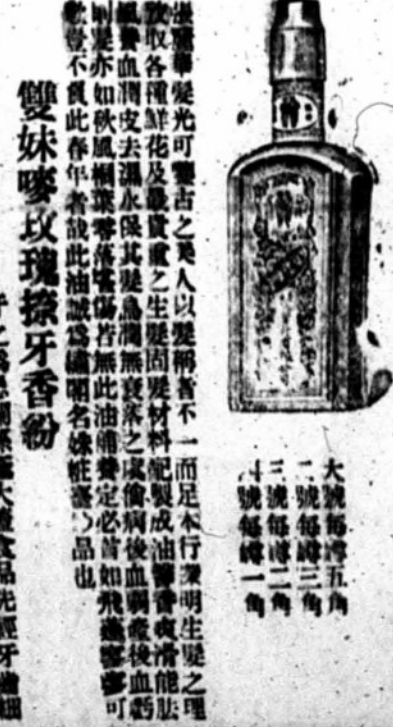 大號每罇五角
二號每罇三角
三號每罇二角
號每罇一角
髮光可鑒古之美人以髮稱者不一而足本行深明生髮之理
收各種鮮花及最貴重之生髮固髮材料配製成油馨香爽滑能
養血潤皮去濕水保其髮烏潤無衰落之虞倘病後血弱產後血虧
則髮亦如秋風桐葉零落堪傷若無此油補養定必首如飛蓬寥寥可
數豈不負此春年者哉此油誠為繡閣名姝粧臺品也
雙妹嘜玫瑰擦牙香粉
牙之為患關係大食品先經牙